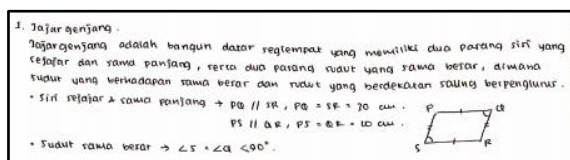 1. Jajar genjang.
Jajargenjang adalah bangun datar segiempat yang memiliki dua pasang sisi yang
sejajar dan sama panjang, serta dua pasang sudut yang sama besar, dimana
sudut yang berhadapan sama besar dan sudut yang berdekatan saling berpenglurus.
• Sisi sejajar & sama panjang → PQ // SR, PQ = SR = 30 cm.
PS // QR, PS = QR = 10 cm.
P Q
S R
• Sudut sama besar → ∠S = ∠Q < 90°.